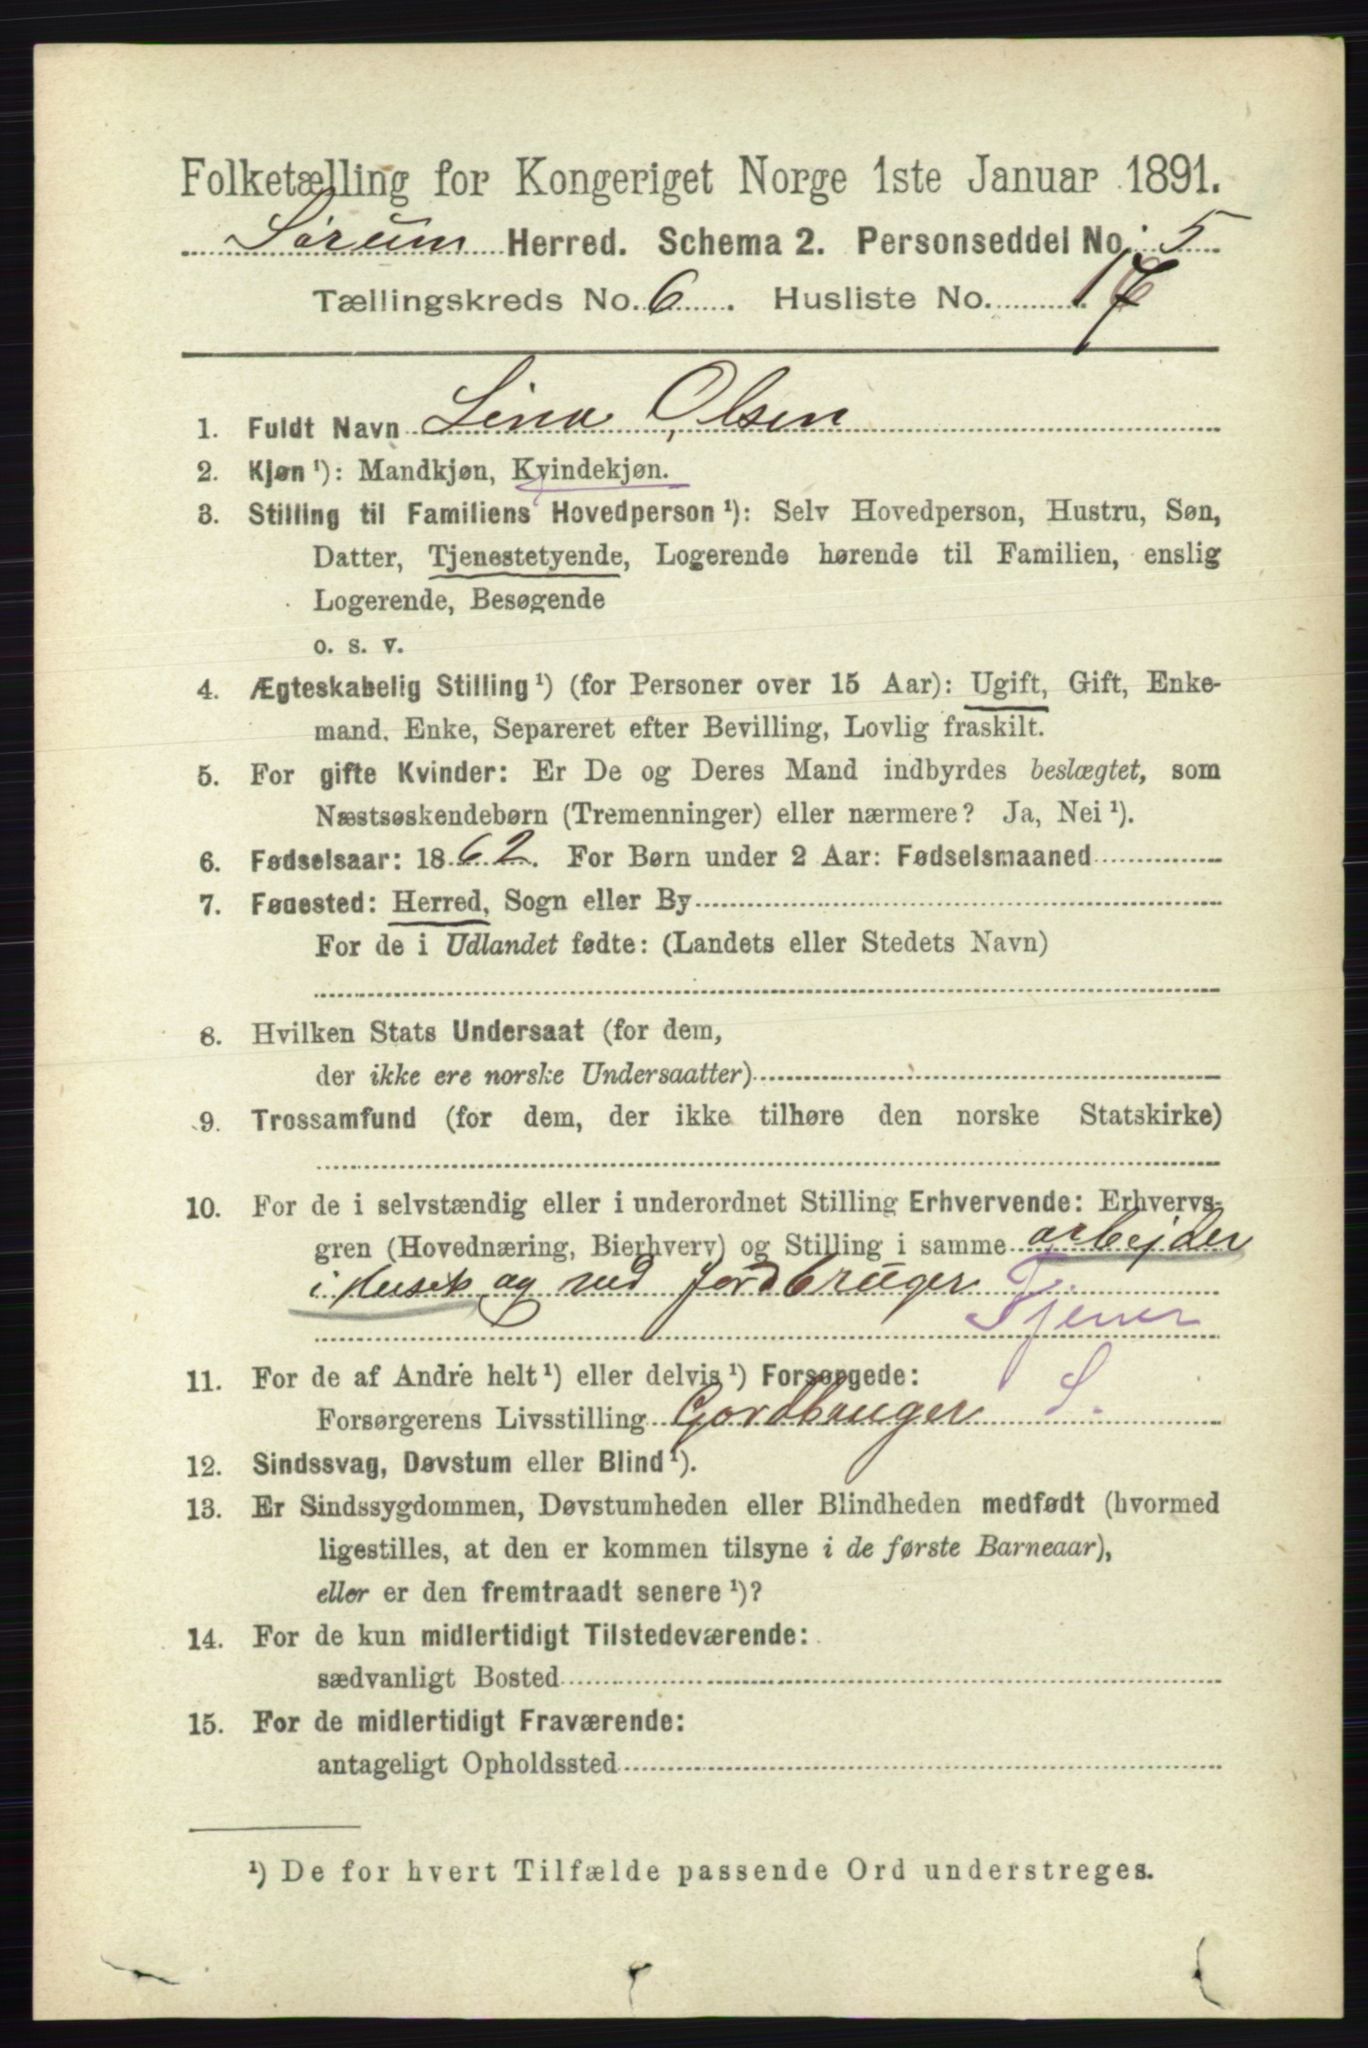 Folketælling for Kongeriget Norge 1ste Januar 1891.
Sørum Herred. Schema 2. Personseddel No. 5
Tællingskreds No. 6. Husliste No. 17
1. Fuldt Navn Lina Olsen
2. Kjøn¹): Mandkjøn, Kvindekjøn.
3. Stilling til Familiens Hovedperson¹): Selv Hovedperson, Hustru, Søn,
Datter, Tjenestetyende, Logerende hørende til Familien, enslig
Logerende, Besøgende
o. s. v.
4. Ægteskabelig Stilling¹) (for Personer over 15 Aar): Ugift, Gift, Enke-
mand. Enke, Separeret efter Bevilling, Lovlig fraskilt.
5. For gifte Kvinder: Er De og Deres Mand indbyrdes beslægtet, som
Næstsøskendebørn (Tremenninger) eller nærmere? Ja, Nei¹).
6. Fødselsaar: 1862. For Børn under 2 Aar: Fødselsmaaned
7. Fødested: Herred, Sogn eller By
For de i Udlandet fødte: (Landets eller Stedets Navn)
8. Hvilken Stats Undersaat (for dem,
der ikke ere norske Undersaatter)
9. Trossamfund (for dem, der ikke tilhøre den norske Statskirke)
10. For de i selvstændig eller i underordnet Stilling Erhvervende: Erhvervs-
gren (Hovednæring, Bierhverv) og Stilling i samme arbejder
i Huset og ved Jordbruger T.
Tjener
11. For de af Andre helt¹) eller delvis¹) Forsørgede:
Forsørgerens Livsstilling Gordbruger S.
12. Sindssvag, Døvstum eller Blind¹).
13. Er Sindssygdommen, Døvstumheden eller Blindheden medfødt (hvormed
ligestilles, at den er kommen tilsyne i de første Barneaar),
eller er den fremtraadt senere¹)?
14. For de kun midlertidigt Tilstedeværende:
sædvanligt Bosted
15. For de midlertidigt Fraværende:
antageligt Opholdssted
¹) De for hvert Tilfælde passende Ord understreges.